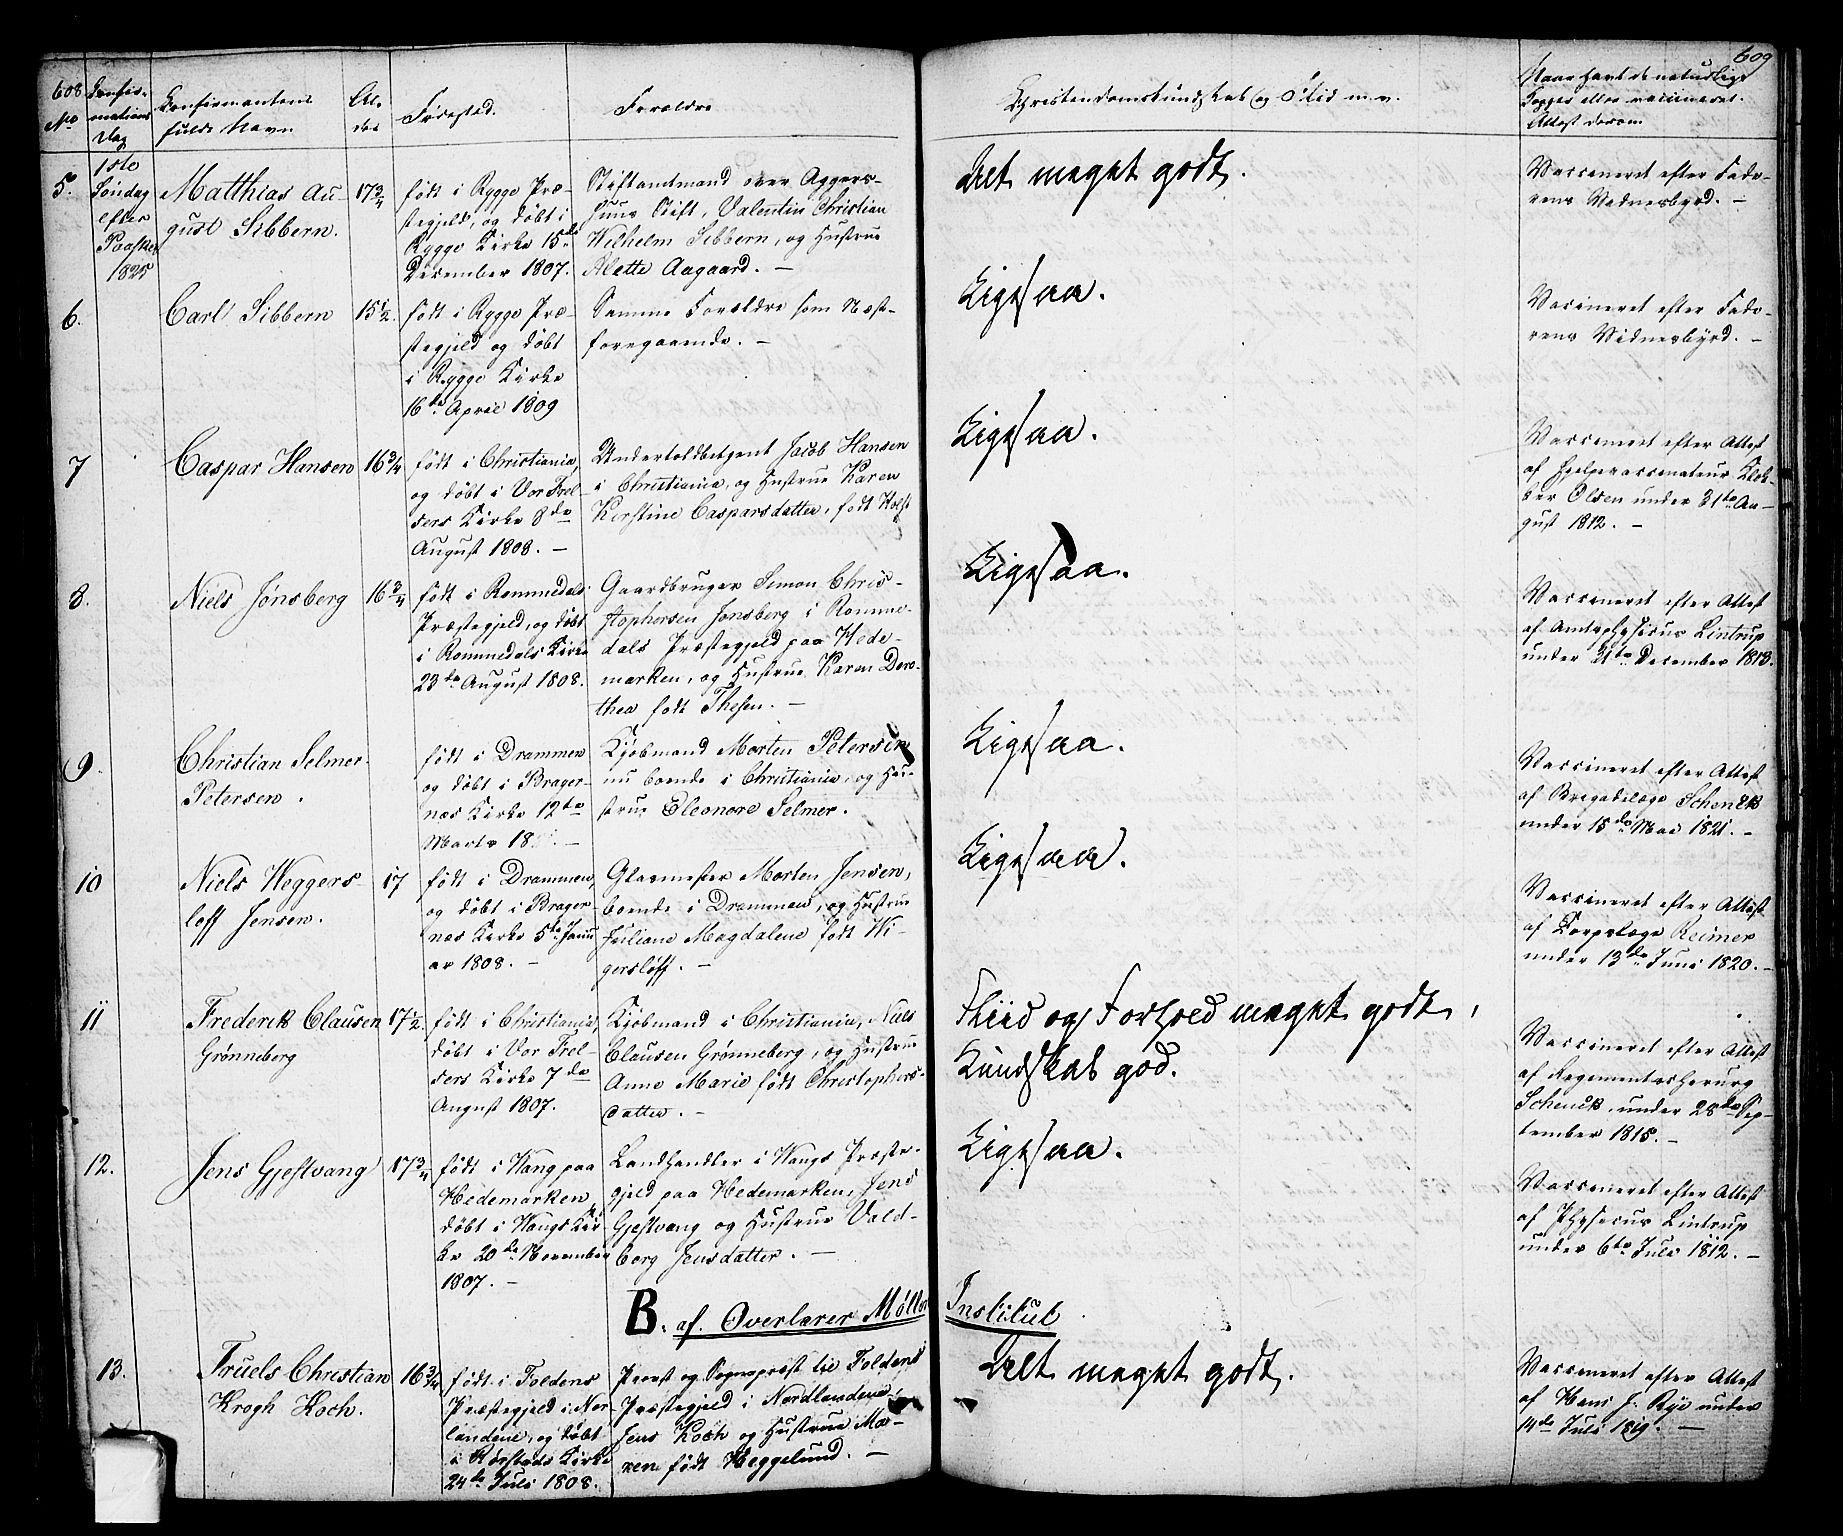 608
No
Confir-
mations
Dag
Confirmantens
fulde Navn
Al-
der
Fødested.
Forældre
Christendomskundskab og Flid m.v.
609
Naar havt de naturlige
Kopper eller vaccineret.
Attest derom
5.
1ste
Søndag
efter
Paaske
1825
Matthias Au-
gust Sibbern.
17 3/4
født i Rygge Præ-
stegjeld, og døbt i
Rygge Kirke 15de
December 1807.
Stiftamtmand over Aggers-
huus Stift, Valentin Christian
Wilhelm Sibbern, og Hustrue
Alette Aagaard. —
Alt meget godt.
Vaccineret efter Fade-
rens Vidnesbyrd. —
6.
Carl Sibbern
15 1/2.
født i Rygge Præ-
stegjeld og døbt
i Rygge Kirke
16de April 1809
Samme Forældre som Næst-
foregaaende. —
Ligesaa.
Vaccineret efter Fade-
rens Vidnesbyrd. —
7
Caspar Hansen
16 3/4
født i Christiania,
og døbt i Vor Frel-
sers Kirke 8de
August 1808. —
Undertoldbetjent Jacob Hansen
i Christiania, og Hustrue Karen
Kirstine Caspersdatter, født Holst
Ligesaa.
Vaccineret efter Attest
af Hjelpevaccinateur Klok-
ker Olsen under 31te Au-
gust 1812. —
8.
Niels Jønsberg
16 3/4
født i Rommedals
Præstegjeld, og døbt
i Rommedals Kirke
23de August 1808.
Gaardbruger Simon Chris-
stophersen Jonsberg i Romme-
dals Præstegjeld paa Hede-
marken, og Hustrue Karen Doro-
thea født Thesen. —
Ligesaa.
Vaccineret efter Attest
af Amtsphysicus Lintrup
under 31te December 1813.
9.
Christian Selmer
Petersen.
født i Drammen
og døbt i Brager-
næs Kirke 12te
Marts 18
Kjøbmand Morten Petersen
nu boende i Christiania, og Hu-
strue Eleonore Selmer.
Ligesaa.
Vaccineret efter Attest
af Brigadelæge Schenck
under 15de Mai 1821. —
10
Niels Weggers-
løff Jensen.
17
født i Drammen,
og døbt i Brager-
næs Kirke 5te Janu
ar 1808. —
Glasmester Morten Jensen,
boende i Drammen, og Hustrue
Juliane Magdalene født Wi-
gersløff. —
Ligesaa.
Vaccineret efter Attest
af Corpslæge Reimer
under 13de Juni 1820. —
11
Frederik Clausen
Grønneberg
17 1/2
født i Christiania,
døbt i Vor Frel-
sers Kirke 7de
August 1807.
Kjøbmand i Christiania, Niels
Clausen Grønneberg, og Hustrue
Anne Marie født Christophers-
datter. —
Fliid og Forhold meget godt,
Kundskab god.
Vaccineret efter Attest
af Regimentschirurg
Schenck, under 28de Sep-
tember 1815. —
12.
Jens Gjestvang
17 3/4
født i Wang paa
Hedemarken,
døbt i Wangs Kir-
ke 20de November
1807. —
Landhandler i Wangs Præste-
gjeld paa Hedemarken, Jens
Gjestvang og Hustrue Vald-
borg Jensdatter. —
Ligesaa.
Vaccineret efter Attest
af Physicus Lintrup
under 6te Juli 1812. —
B. af Overlærer Møllers Institut
13.
Truels Christian
Krogh Koch.
16 3/4
født i Foldens
Præstegjeld i Nor-
landene, og døbt
i Rørstads Kirke
24de Juli 1808.
Provst og Sognepræst til Foldens
Præstegjeld i Nordlandene,
Jens Koch og Hustrue Ma-
ren født Heggelund. —
Alt meget godt.
Vaccineret efter Attest
af Hans J. Rye under
14de Juli 1819. —